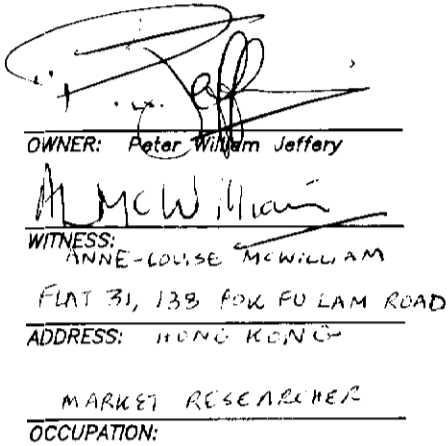 P.W. Jeffery
OWNER: Peter William Jeffery
AL McWilliam
WITNESS:
ANNE-LOUISE MCWILLIAM
FLAT 31, 138 POK FU LAM ROAD
ADDRESS: HONG KONG
MARKET RESEARCHER
OCCUPATION: